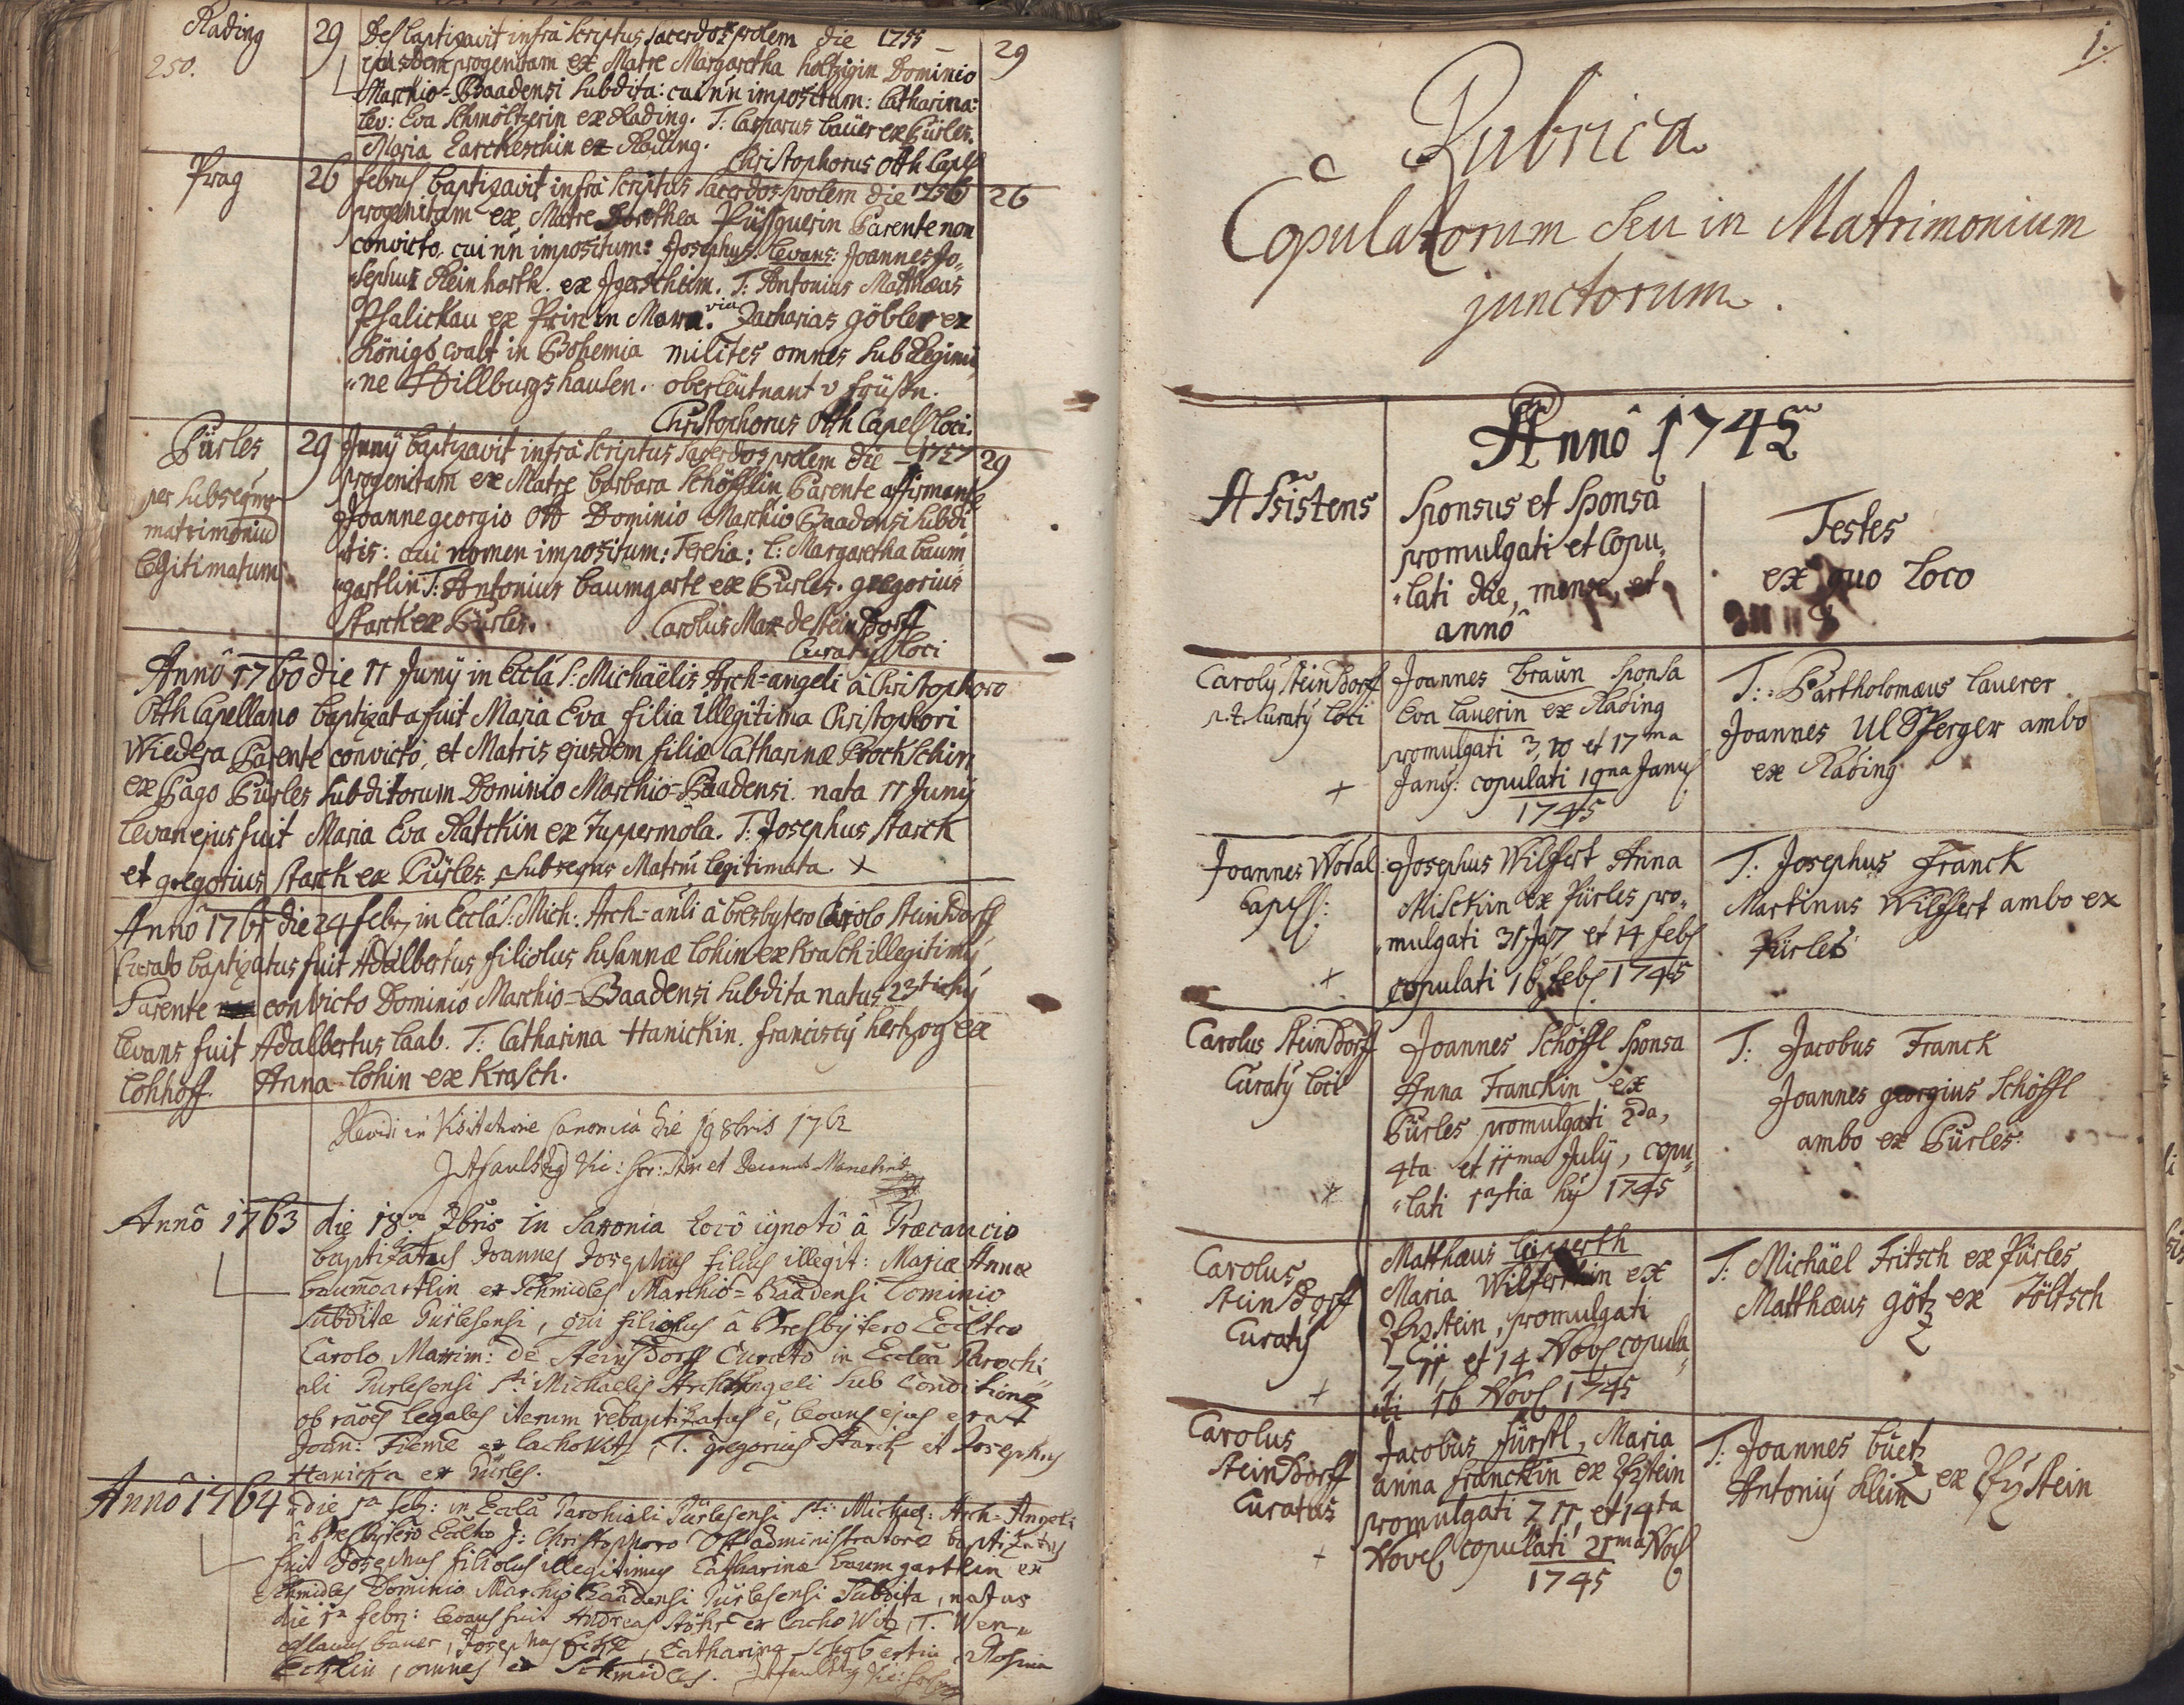 Rading
250.
29 Des baptizavit infrà scriptus sacerdos prolem die 1755 29
ejusdem progenitam ex Matre Margaretha holtzigin Dominio
Marchio=Baadensi subdita: cui nn impositum: Catharina:
lev: Eva Schmöltzerin ex Rading. T: Casparus baüer ex Pürles.
Maria ex Rading.
Christophorus Oth Capell
Prag
26 februs baptizavit infrà scriptus sacerdos prolem die 1756 26
progenitam ex Matre Dorothea Parente non
convicto. cui nn impositum: Josephus. levans: Joannes Jo„
„sephus Reinharth. ex Jgersheim. T: Antonius Matthæus
Psalickau ex in Mora.via Zacharias göbler ex
Königs walt in Bohemia milites omnes sub Regimi„
„ne Hillburgshausen. oberleütnant v
Christophorus Oth Capell loci.
Pürles
per subseqns
matrimoniu
legitimatum
29 Junÿ baptizavit infrà scriptus sacerdos prolem die 1757 29
progenitam ex Matre barbara Schöfflin Parente affirmante
Joannegeorgio Ott Dominio Marchio Baadensi subdi„
„tis: cui nomen impositum: Teresia: l: Margaretha baum„
„gartlin T: Antonius baumgartl ex Pürles. gregorius
Starck ex Pürles. Carolus Max de Steinsdorff
Curatus loci
Annô 1760 die 11 Junÿ in Ecclâ S: Michaëlis Arch=angeli â Christophoro
Oth Capellano baptizata fuit Maria Eva filia illegitima Christophori
Wiedera Parente convicto, et Matris ejusdem filiæ Catharinæ Prockschin
ex Pago Pürles subditorum Dominio Marchio=Baadensi. nata 11 Junÿ
levan ejus fuit Maria Eva Ratckin ex Tuppermola. T: Josephus Starck
et gregorius Starck ex Pürles. subseqns Matrm legitimata. x
Annô 1761 die 24 febr, in Ecclâ S: Mich: Arch=anli â Presbytero Carolo Steinsdorff
Curato baptizatus fuit Adalbertus filiolus Susannæ lohin ex Krasch illegitimus
Parente convicto Dominio Marchio=Baadensi subdita natus 23tia hÿ
levans fuit Adalbertus laab. T: Catharina Hanickin. franciscus hertzog ex
lohhoff. Anna lohin ex Krasch.
Revidi in Visitatione Canonica die 19 8bris 1762
Annô 1763 die 18va 7bris in Saxonia locô ignotô â Præcaucio
baptizatus Joannes Josephus filius illegit: Mariæ Annæ
baumgartlin ex Schmidles Marchio=Baadensi Dominio
subditæ Pürlesensi, qui filiolus â Presbÿtero Ecclico
Carolo Maxim: de Steinsdorff Curato in Ecclâ Parochi„
ali Pürlesensi Sti Michaelis ArchAngeli sub Conditione
ob rãões legales iterum rebaptizatus ẽ, levans ejus erat
Joan: Fieme ex lachowitz, T. gregorius Starck et Josephus
Hanicka ex Pürles.
Annô 1764 die 1a feb: in Ecclâ Parohiali Pürlesensi Sti: Michael: Arch=Angeli
â Presbÿtero Ecclico J: Christophoro Ott administratore baptizatus
fuit Josephus filiolus illegitimus Catharinæ baumgartlin ex
Schmidles Dominio Marchio Baadensi Pürlesensi Subdita, natus
die 1a febr: levans fuit Andreas Stöhr ex lachowitz, T. Wen„
ceslaus bauer, Josephus , Catharina Schobertin, Rosina
, omnes ex Schmidles.
1.
Rubrica
Copulatorum seu in Matrimonium
junctorum.
Annô 1745
Assistens
Sponsus et Sponsa
promulgati et Copu„
„lati die, mense, et
annô
Testes
ex quo loco
Carolus Steinsdorf
p.t. Curatus loci
+
Joannes Braun Sponsa
Eva lauerin ex Rading
promulgati 3, 10 et 17ma
Janÿ: copulati 19na Janus
1745
T: Bartholomæus lauerer
Joannes Ulsperger ambo
ex Rading
Joannes Wodal
Capell:
+
Josephus Wilffert Anna
Misckin ex Pürles pro„
„mulgati 31 Ja, 7 et 14 feb
copulati 16 feb 1745
T: Josephus Franck
Martinus Wilffert ambo ex
Pürles
Carolus Steinsdorff
Curatus loci
+
Joannes Schöffl Sponsa
Anna Franckin ex
Pürles promulgati 2da,
4ta et 11ma Julÿ, copu„
„lati hÿ 1745
T: Jacobus Franck
Joannes georgius Schöffl
ambo ex Pürles
Carolus
Steinsdorff
Curatus
+
Matthæus
Maria ex
promulgati
7 11 et 14 Nov copula„
„ti 16 Nov 1745
T: Michäel Fritsch ex Pürles
Matthæus götz ex Töltsch
Carolus
Steinsdorff
Curatus
+
Jacobus fürstl, Maria
anna franckin ex
promulgati 7 11, et 14ta
Nove, copulati 21ma Nov
1745
T: Joannes büetz
Antoniÿ Klein ex